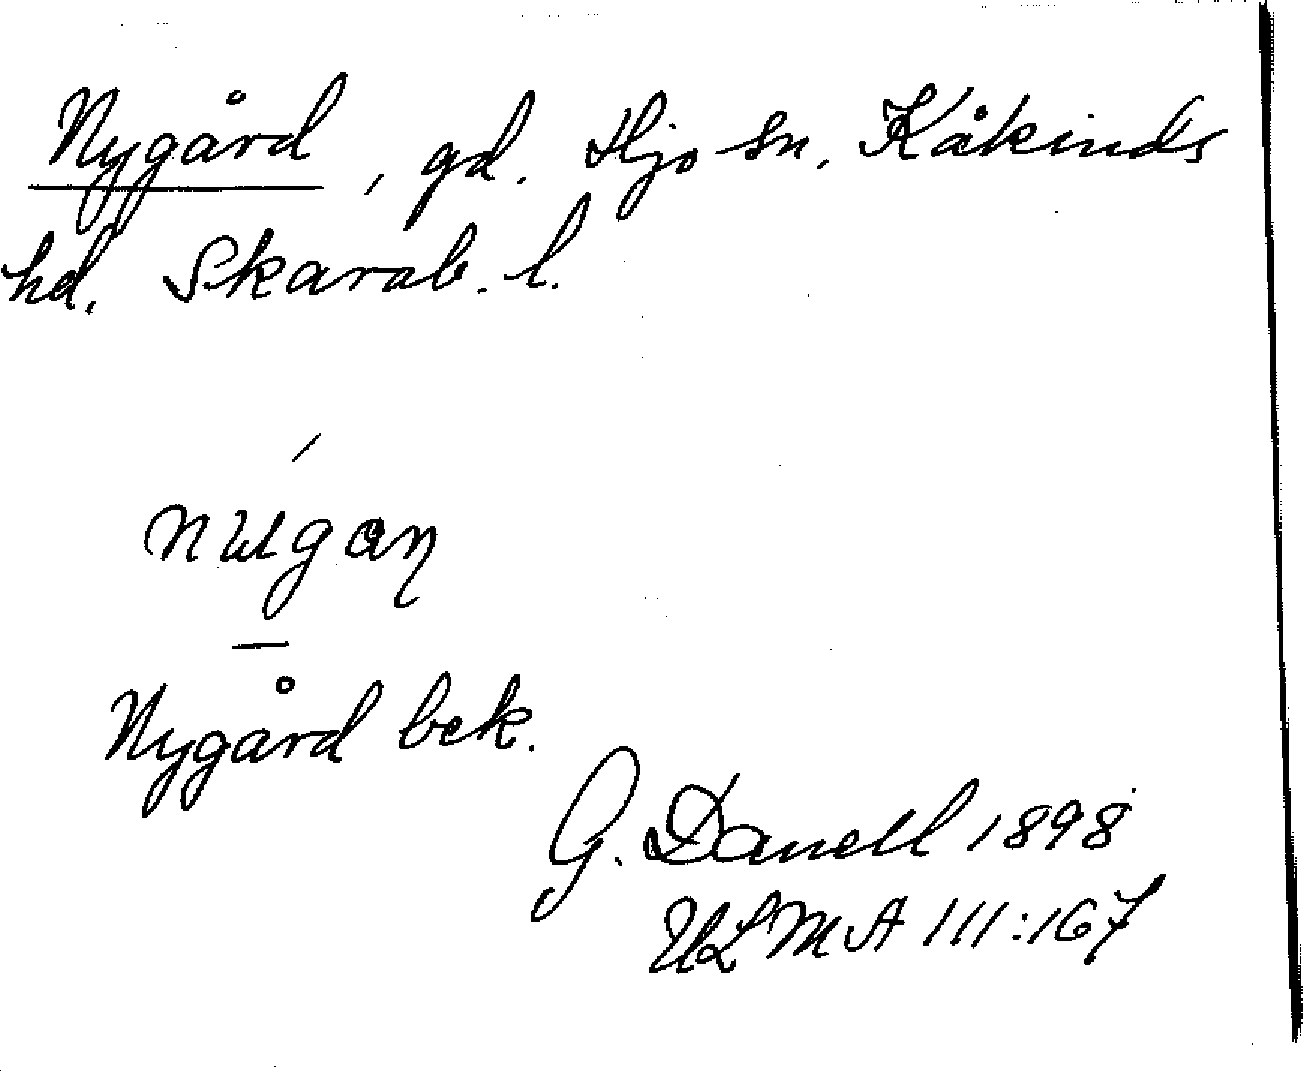 Nygård, gd. Hjo sn, Kåkinds
hd. Skarab. l.
Nygård bek.
G. Danell 1898
ULMA 111:167